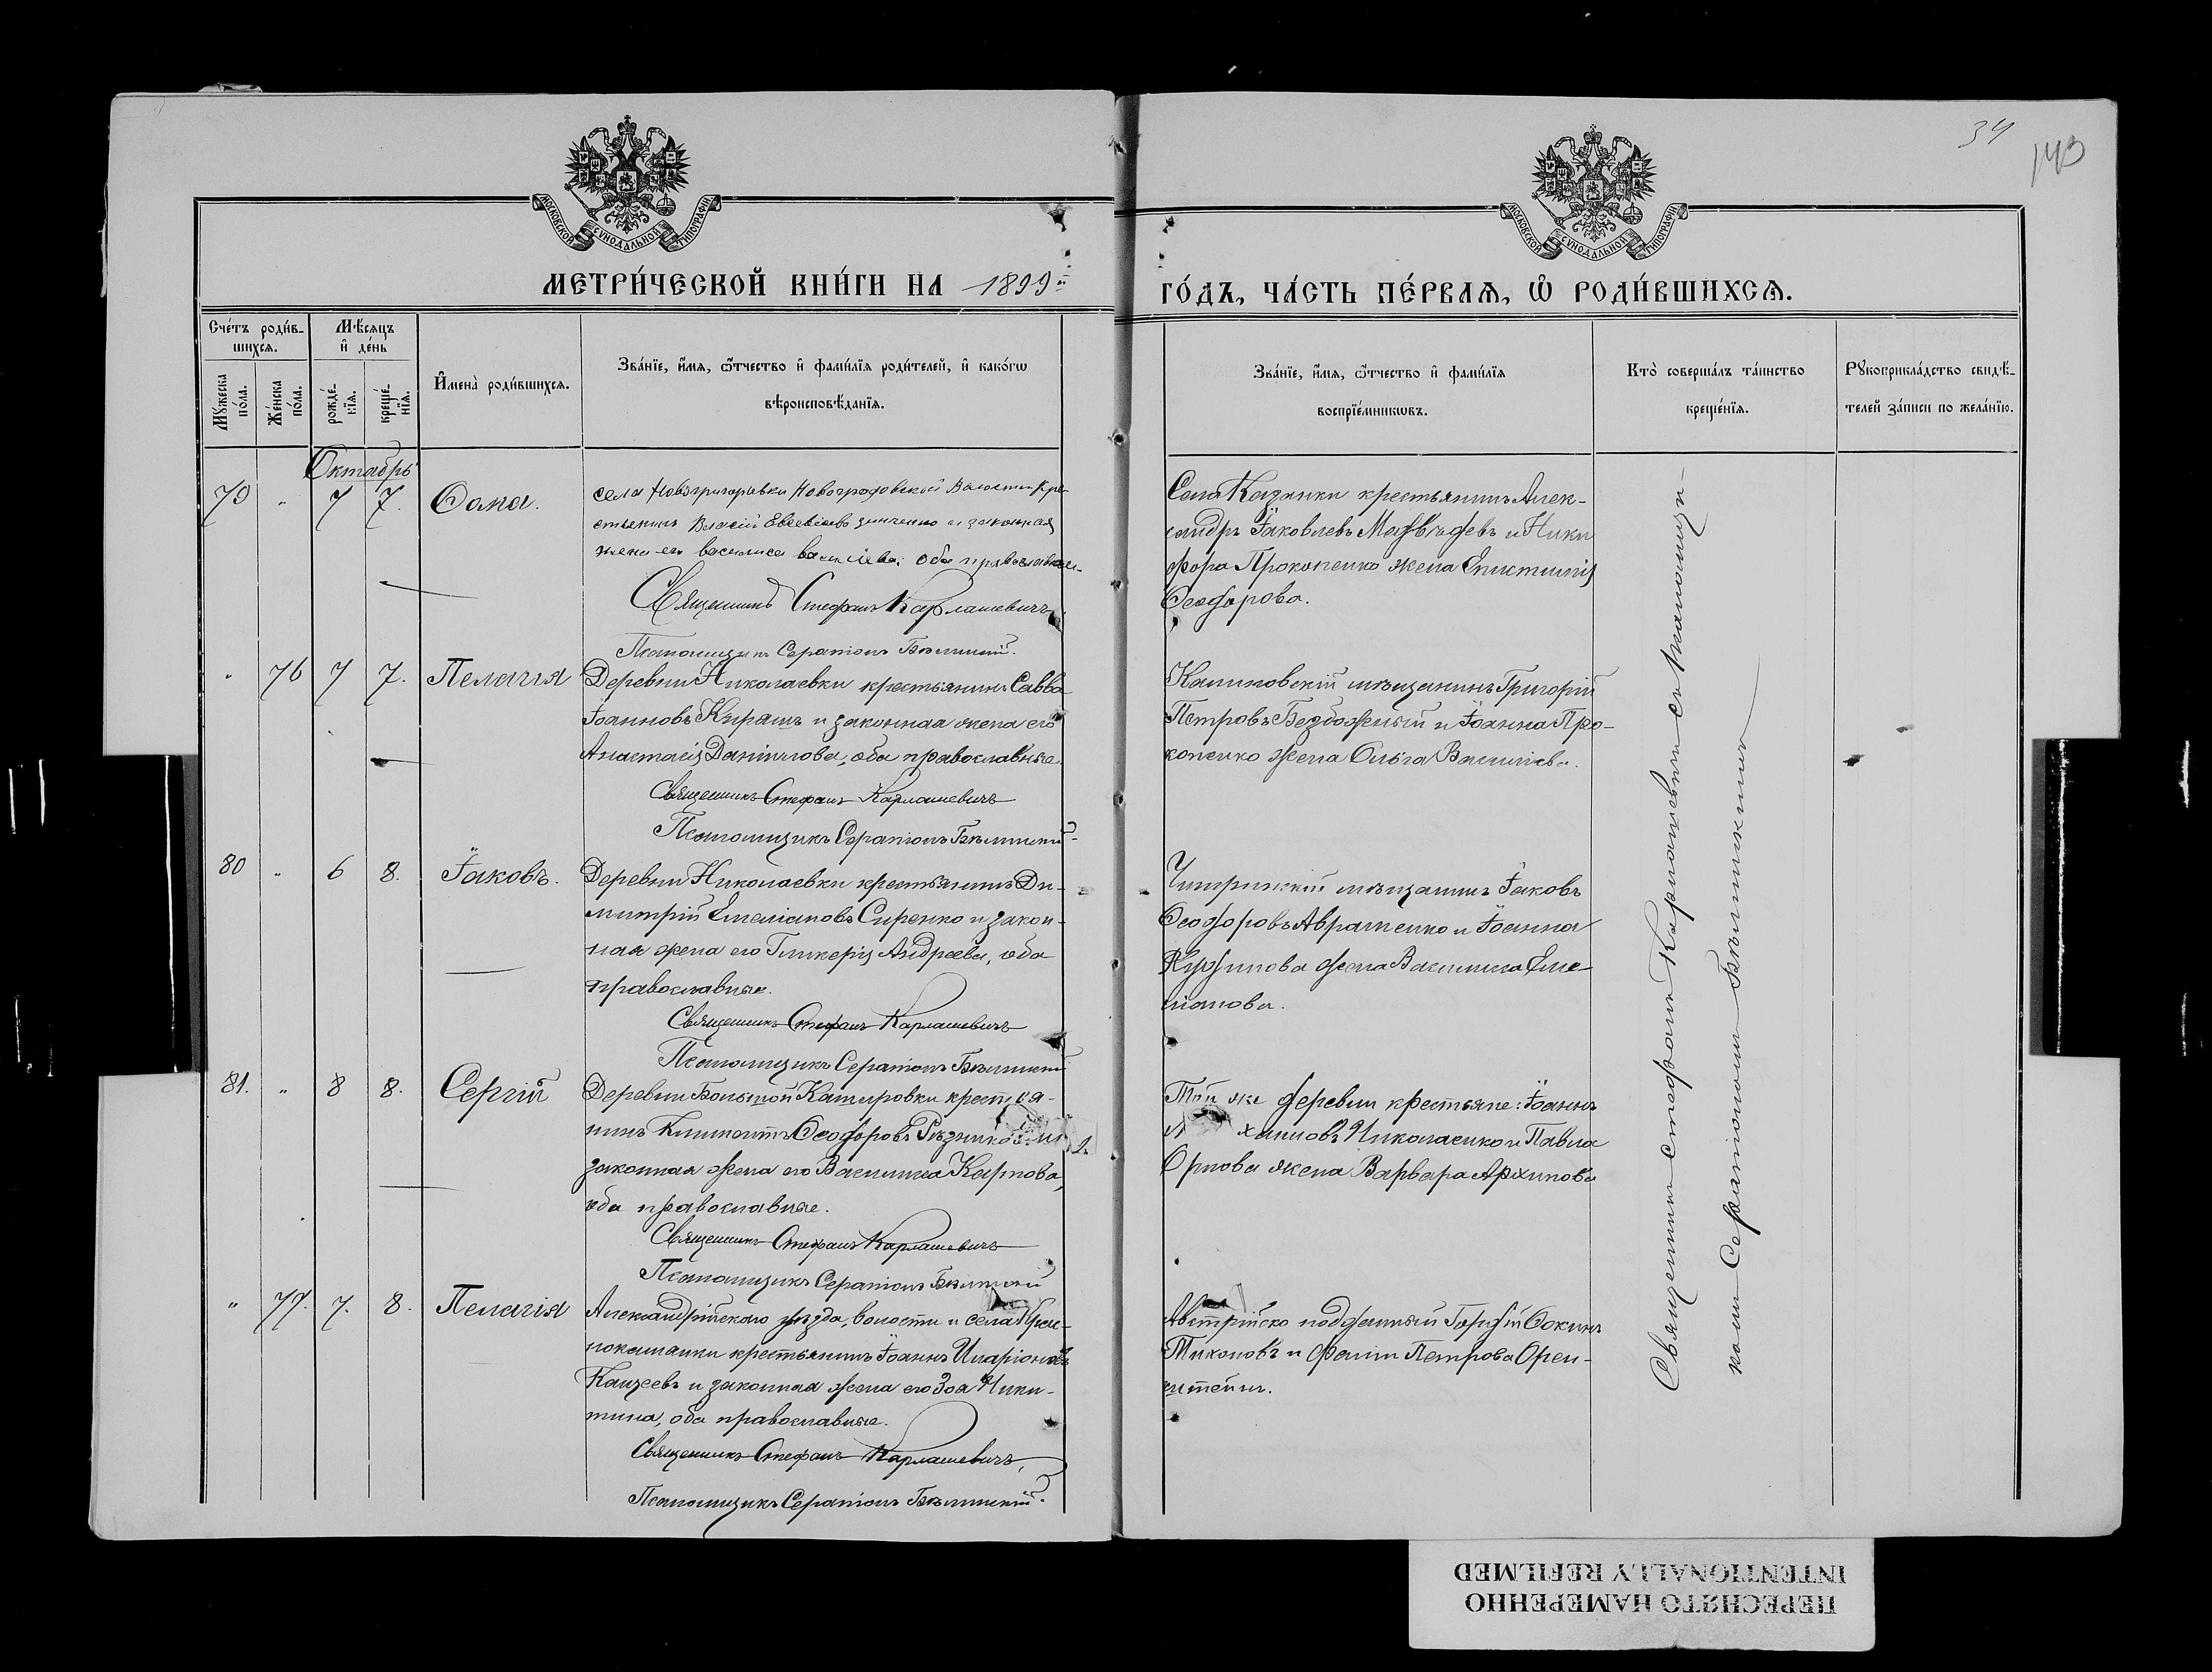 34
143
МОСКОВСКОЙ СѴНОДАЛЬНОЙ ТИПОГРАФІИ
МОСКОВСКОЙ СѴНОДАЛЬНОЙ ТИПОГРАФІИ
МЕТРИ́ЧЕСКОЙ КНИ́ГИ НА 1899й
ГО́ДЪ, ЧА́СТЬ ПЕ́РВАЯ, Ѽ РОДИ́ВШИХСЯ.
Сче́тъ роди́в-
шихся.
Мѣ́сяцъ
и де́нь
Мꙋ́жеска по́ла.
Же́нска по́ла.
рожде́-нїя.
креще́-нїя.
Имена̀ роди́вшихся.
Зва́нїе, и́мя, ѻ́тчество и фами́лїя роди́телей, и како́гѡ
вѣроисповѣ́данїя.
Зва́нїе, и́мя, ѻ́тчество и фами́лїя
воспрїе́мникѡвъ.
Кто̀ соверша́лъ та́инство
креще́нїя.
Рꙋкоприкла́дство свидѣ́-
телей за́писи по жела́нїю.
Октябрь
79 " 7 7. Ѳома.
села Новогригорьевки Новоградовской Волости Кре-
стьянинъ Власій Евсевіевъ Зинченко и законная
жена его Василиса Васильева, оба православные.
Священникъ Стефанъ Карлашевичъ
Псаломщикъ Серапіонъ Бѣлинскій.
Села Казанки крестьянинъ Алек-
сандръ Іаковлевъ Матвѣевъ и Ники
фора Прокопенко жена Епистимія
Ѳеодорова.
" 76 7 7. Пелагія
Деревни Николаевки крестьянинъ Савва
Іоанновъ Кирашъ и законная жена его
Анастасія Даніилова, оба православные.
Священникъ Стефанъ Карлашевичъ
Псаломщикъ Серапіонъ Бѣлинскій.
мѣщанинъ Григорій
Петровъ Безбожный и Іоанна Про-
копенко жена Ольга Васильева.
80 " 6 8. Іаковъ.
Деревни Николаевки крестьянинъ Ди-
митрій Емеліановъ Сиренко и закон-
ная жена его Гликерія Андреева, оба
православные.
Священникъ Стефанъ Карлашевичъ
Псаломщикъ Серапіонъ Бѣлинскій
Чигринскій мѣщанинъ Іаковъ
Ѳеодоровъ Авраменко и Іоанна
жена Василиса Еме-
ліанова.
81. " 8 8. Сергій
Деревни Большой Кашировки крестья-
нинъ Климентъ Ѳеодоровъ Рѣзников и
законная жена его Василиса Карпова,
оба православные.
Священникъ Стефанъ Карлашевичъ
Псаломщикъ Серапіонъ Бѣлинскій
Той же деревни крестьяне: Іоаннъ
Николаенко и Павла
Орлова жена Варвара Архипова
" 77. 7. 8. Пелагія
Александрійскаго уѣзда, волости и села
крестьянинъ Іоаннъ Иларіоновъ
Кащеевъ и законная жена его Зоя Ники-
тина, оба православные.
Священникъ Стефанъ Карлашевичъ,
Псаломщикъ Серапіонъ Бѣлинскій.
Австрійско подданный
Тихоновъ и Петрова Орен-
штейнъ.
Священникъ Стефанъ Карлашевичъ съ Псаломщи-
комъ Серапіономъ Бѣлинскимъ
ПЕРЕСНЯТО НАМЕРЕННО
INTENTIONALLY REFILMED